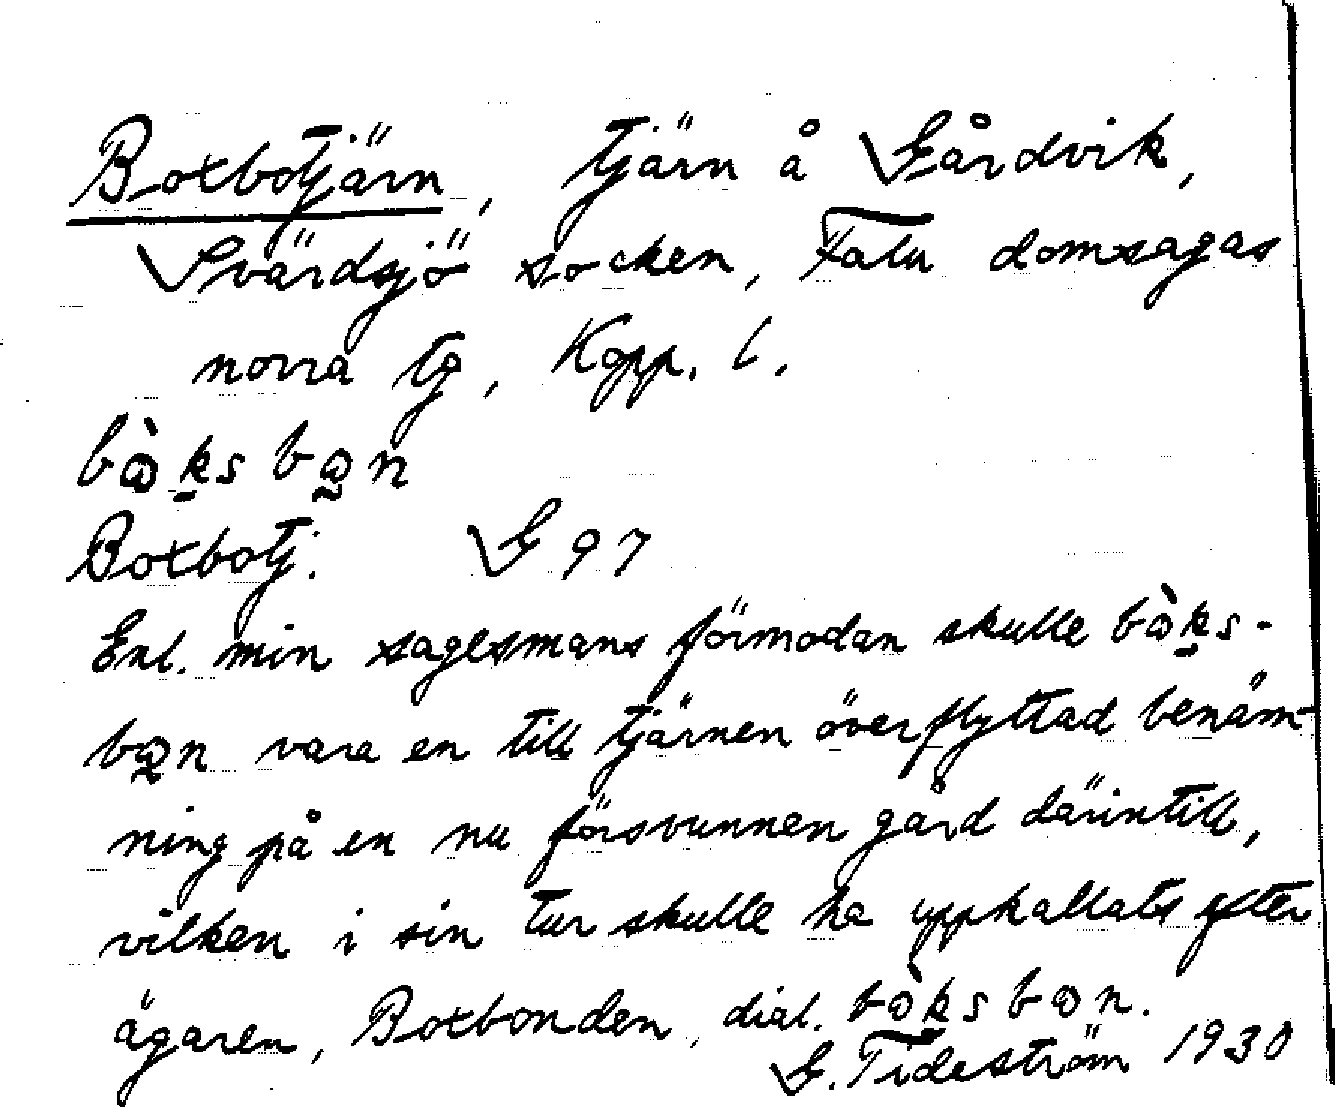 Boxbotjärn, tjärn å Gårdvik,
Svärdsjö socken, Falu domsagas
norra tg, Kopp. l.
bò̱ksbon
Boxbotj. G 97
Enl. min sagesmans förmodan skulle bòks-
bon vara en till tjärnen överflyttad benäm-
ning på en nu försvunnen gård därintill,
vilken i sin tur skulle ha uppkallats efter
ägaren, Boxbonden, dial. bòksbon.
G. Tideström 1930